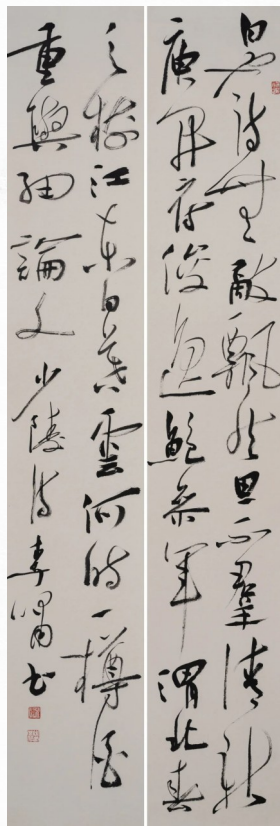 白也詩無敵飄然思不羣清新
庾開府俊逸鮑參軍渭北春
天樹江東日暮雲何時一樽酒
重與細論文 少陵詩 李嘯書